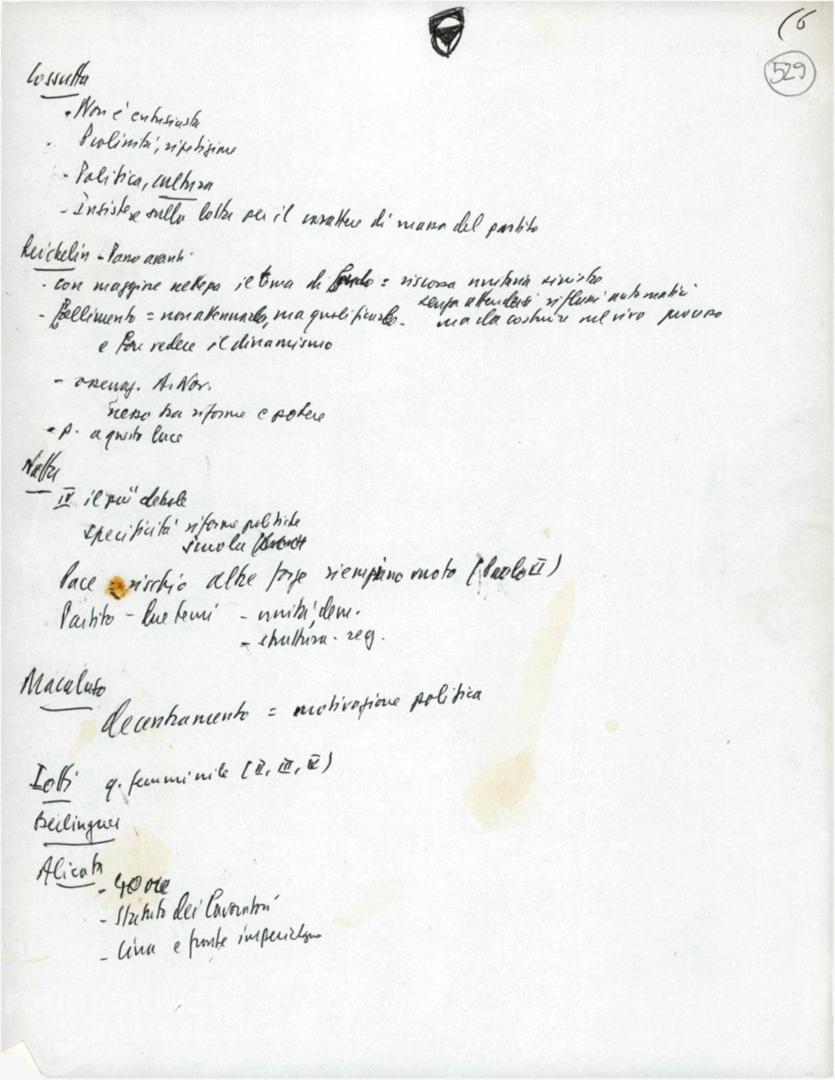 (6
529
Cossutta
- Non è entusiasta
- Prolissità, ripetizione
- Politica, cultura
- Insistere sulla lotta per il carattere di massa del partito
Reichlin - Passo avanti
- con maggiore nettezza il tema di fondo = riscossa unitaria sinistra
senza attendersi riflussi automatici
- Fallimento = non attenuarlo, ma qualificarlo. ma da costruire nel vivo processo
e far vedere il dinamismo
- A. Nov.
nesso tra riforme e potere
- p. a questa luce
Natta
IV il più debole
specificità riforme politiche
scuola
Pace rischio altre forze riempiano vuoto (Paolo VI)
Partito - due temi - unità, dem.
- struttura. reg.
Macaluso
decentramento = motivazione politica
Iotti q. femminile (II, III, V)
Berlinguer
Alicata
- 40 ore
- Statuto dei lavoratori
- Cina e fronte